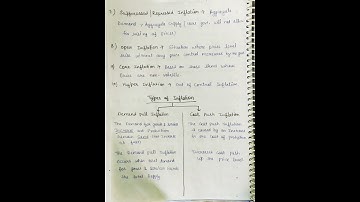 7) Suppressed / Repressed Inflation → Aggregate
Demand > Aggregate Supply / but govt. will not allow
for raising of prices
8) Open Inflation → Situation where price level
rises without any price control measures by the govt
9) Core Inflation → Based on those items whose
prices are non-volatile
10) Hyper Inflation → Out of Control Inflation
Types of Inflation
Demand Pull Inflation
The Demand for goods & services
Increase and Production
Remain same or increase
The Demand Pull Inflation
occurs when total demand
for goods & services exceeds
the total supply
Cost Push Inflation
The Cost Push Inflation
is caused by an increase
in the cost of production
Increased cost push
up the price level